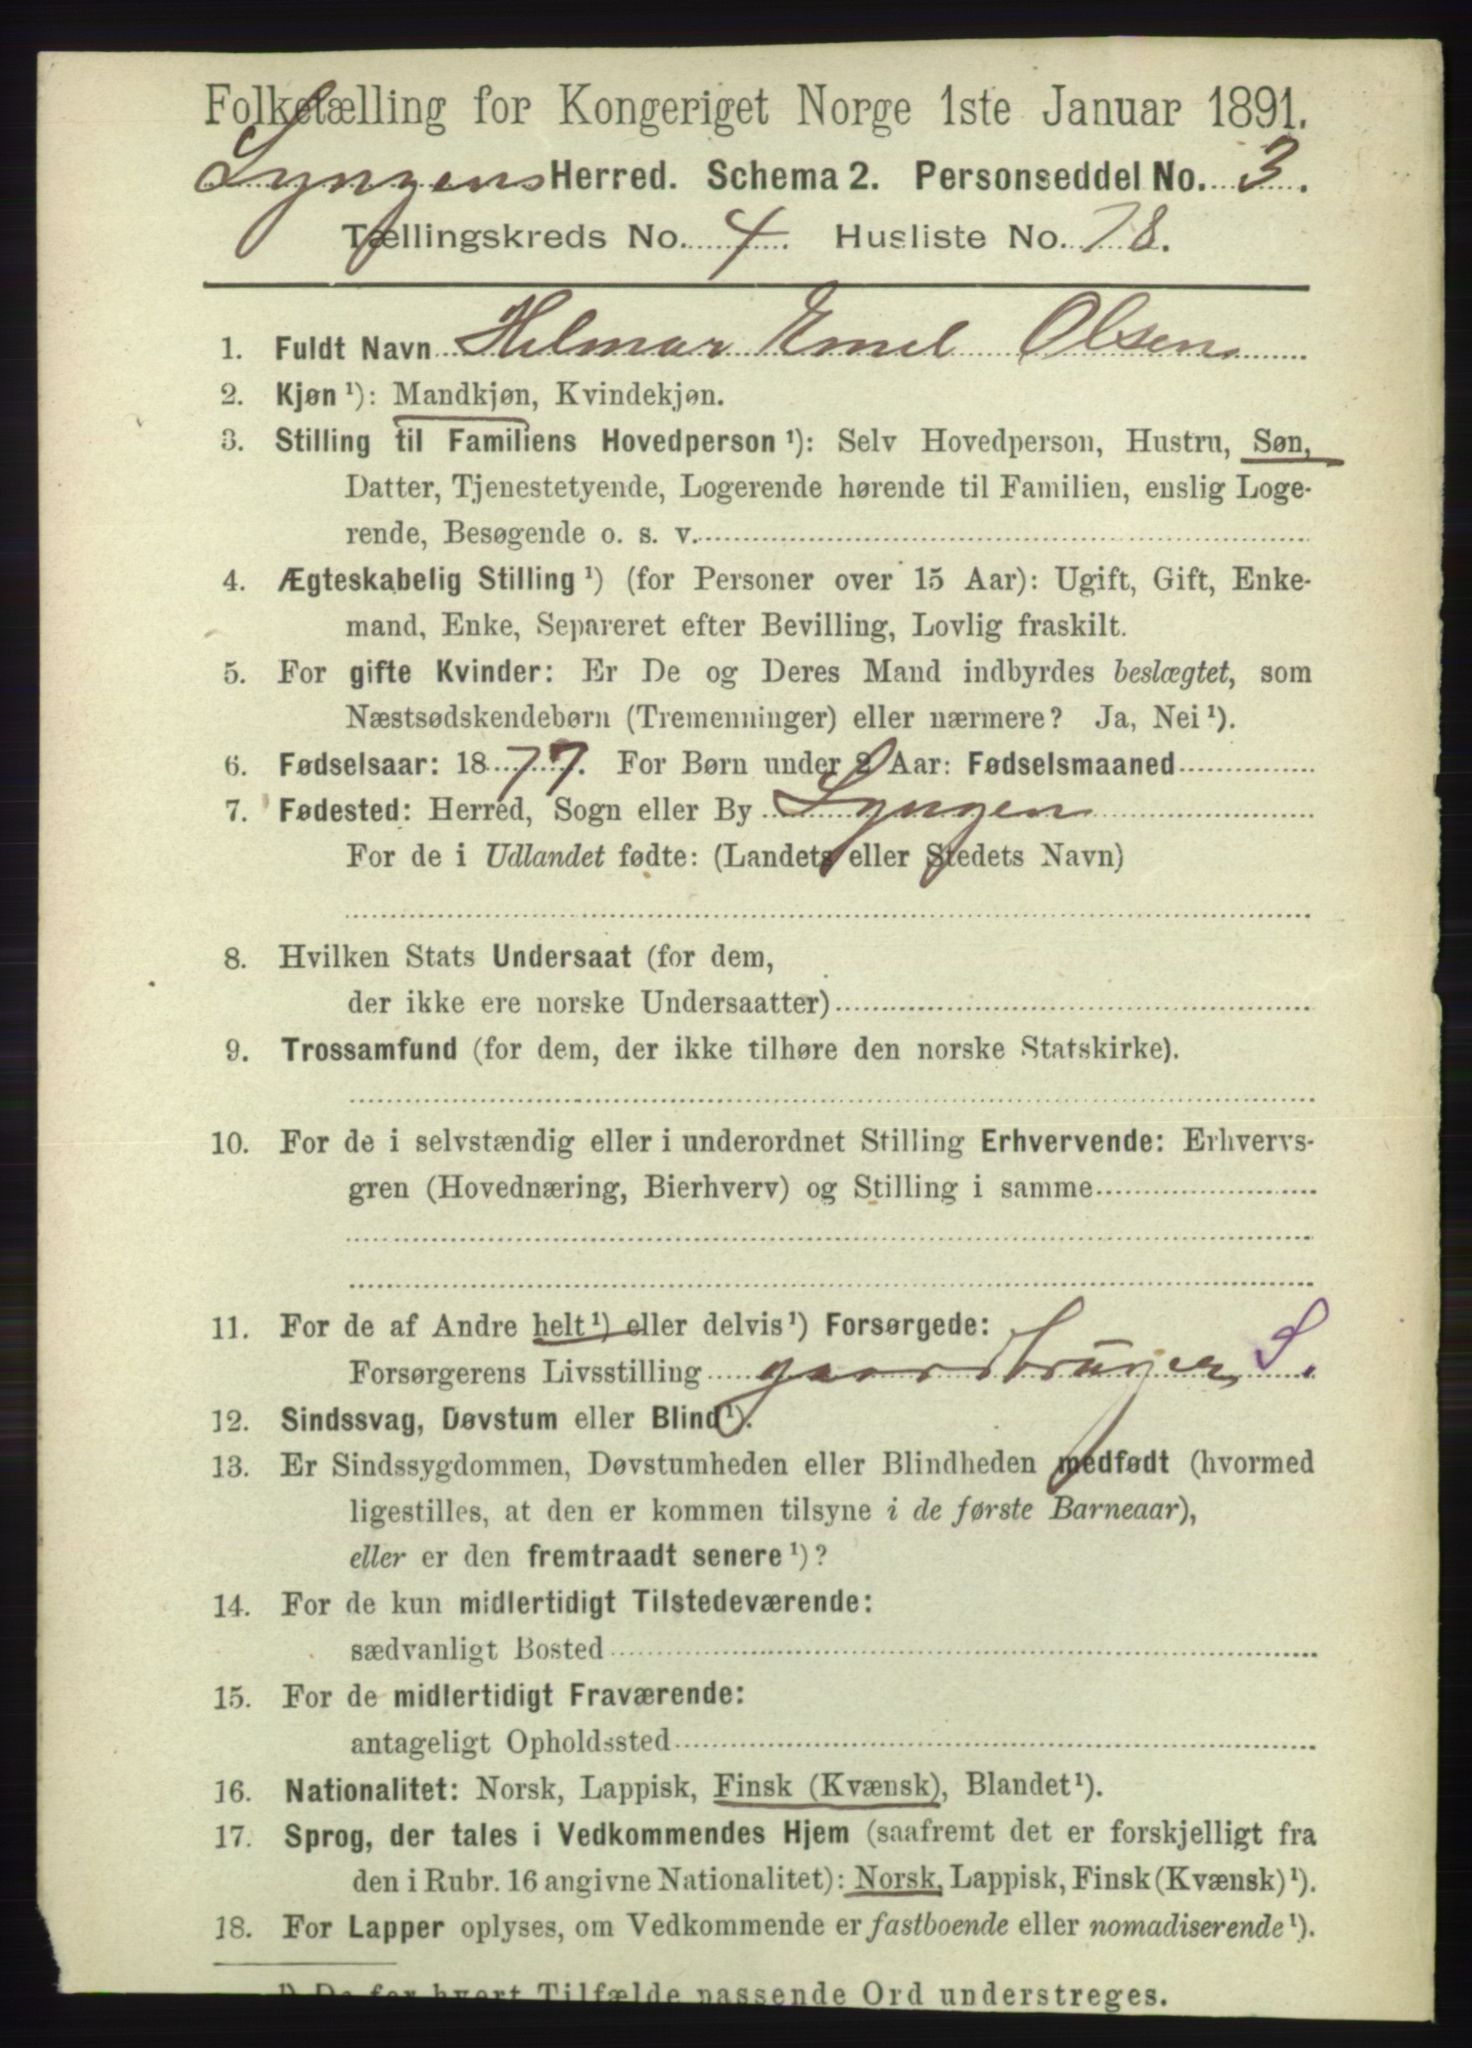 Folketælling for Kongeriget Norge 1ste Januar 1891.
Lyngens Herred. Schema 2. Personseddel No. 3.
Tællingskreds No. 4 Husliste No. 78.
1. Fuldt Navn Hilmar Emel Olsen
2. Kjøn ¹): Mandkjøn, Kvindekjøn.
3. Stilling til Familiens Hovedperson ¹): Selv Hovedperson, Hustru, Søn,
Datter, Tjenestetyende, Logerende hørende til Familien, enslig Loge-
rende, Besøgende o. s. v.
4. Ægteskabelig Stilling ¹) (for Personer over 15 Aar): Ugift, Gift, Enke-
mand, Enke, Separeret efter Bevilling, Lovlig fraskilt.
5. For gifte Kvinder: Er De og Deres Mand indbyrdes beslægtet, som
Næstsødskendebørn (Tremenninger) eller nærmere? Ja, Nei ¹).
6. Fødselsaar: 1877. For Børn under 2 Aar: Fødselsmaaned
7. Fødested: Herred, Sogn eller By Lyngen
For de i Udlandet fødte: (Landets eller Stedets Navn)
8. Hvilken Stats Undersaat (for dem,
der ikke ere norske Undersaatter)
9. Trossamfund (for dem, der ikke tilhøre den norske Statskirke).
10. For de i selvstændig eller i underordnet Stilling Erhvervende: Erhvervs-
gren (Hovednæring, Bierhverv) og Stilling i samme
11. For de af Andre helt ¹) eller delvis ¹) Forsørgede:
Forsørgerens Livsstilling gaardbruger S.
12. Sindssvag, Døvstum eller Blind ¹).
13. Er Sindssygdommen, Døvstumheden eller Blindheden medfødt (hvormed
ligestilles, at den er kommen tilsyne i de første Barneaar),
eller er den fremtraadt senere ¹)?
14. For de kun midlertidigt Tilstedeværende:
sædvanligt Bosted
15. For de midlertidigt Fraværende:
antageligt Opholdssted
16. Nationalitet: Norsk, Lappisk, Finsk (Kvænsk), Blandet ¹).
17. Sprog, der tales i Vedkommendes Hjem (saafremt det er forskjelligt fra
den i Rubr. 16 angivne Nationalitet): Norsk, Lappisk, Finsk (Kvænsk) ¹).
18. For Lapper oplyses, om Vedkommende er fastboende eller nomadiserende ¹).
¹) De for hvert Tilfælde passende Ord understreges.